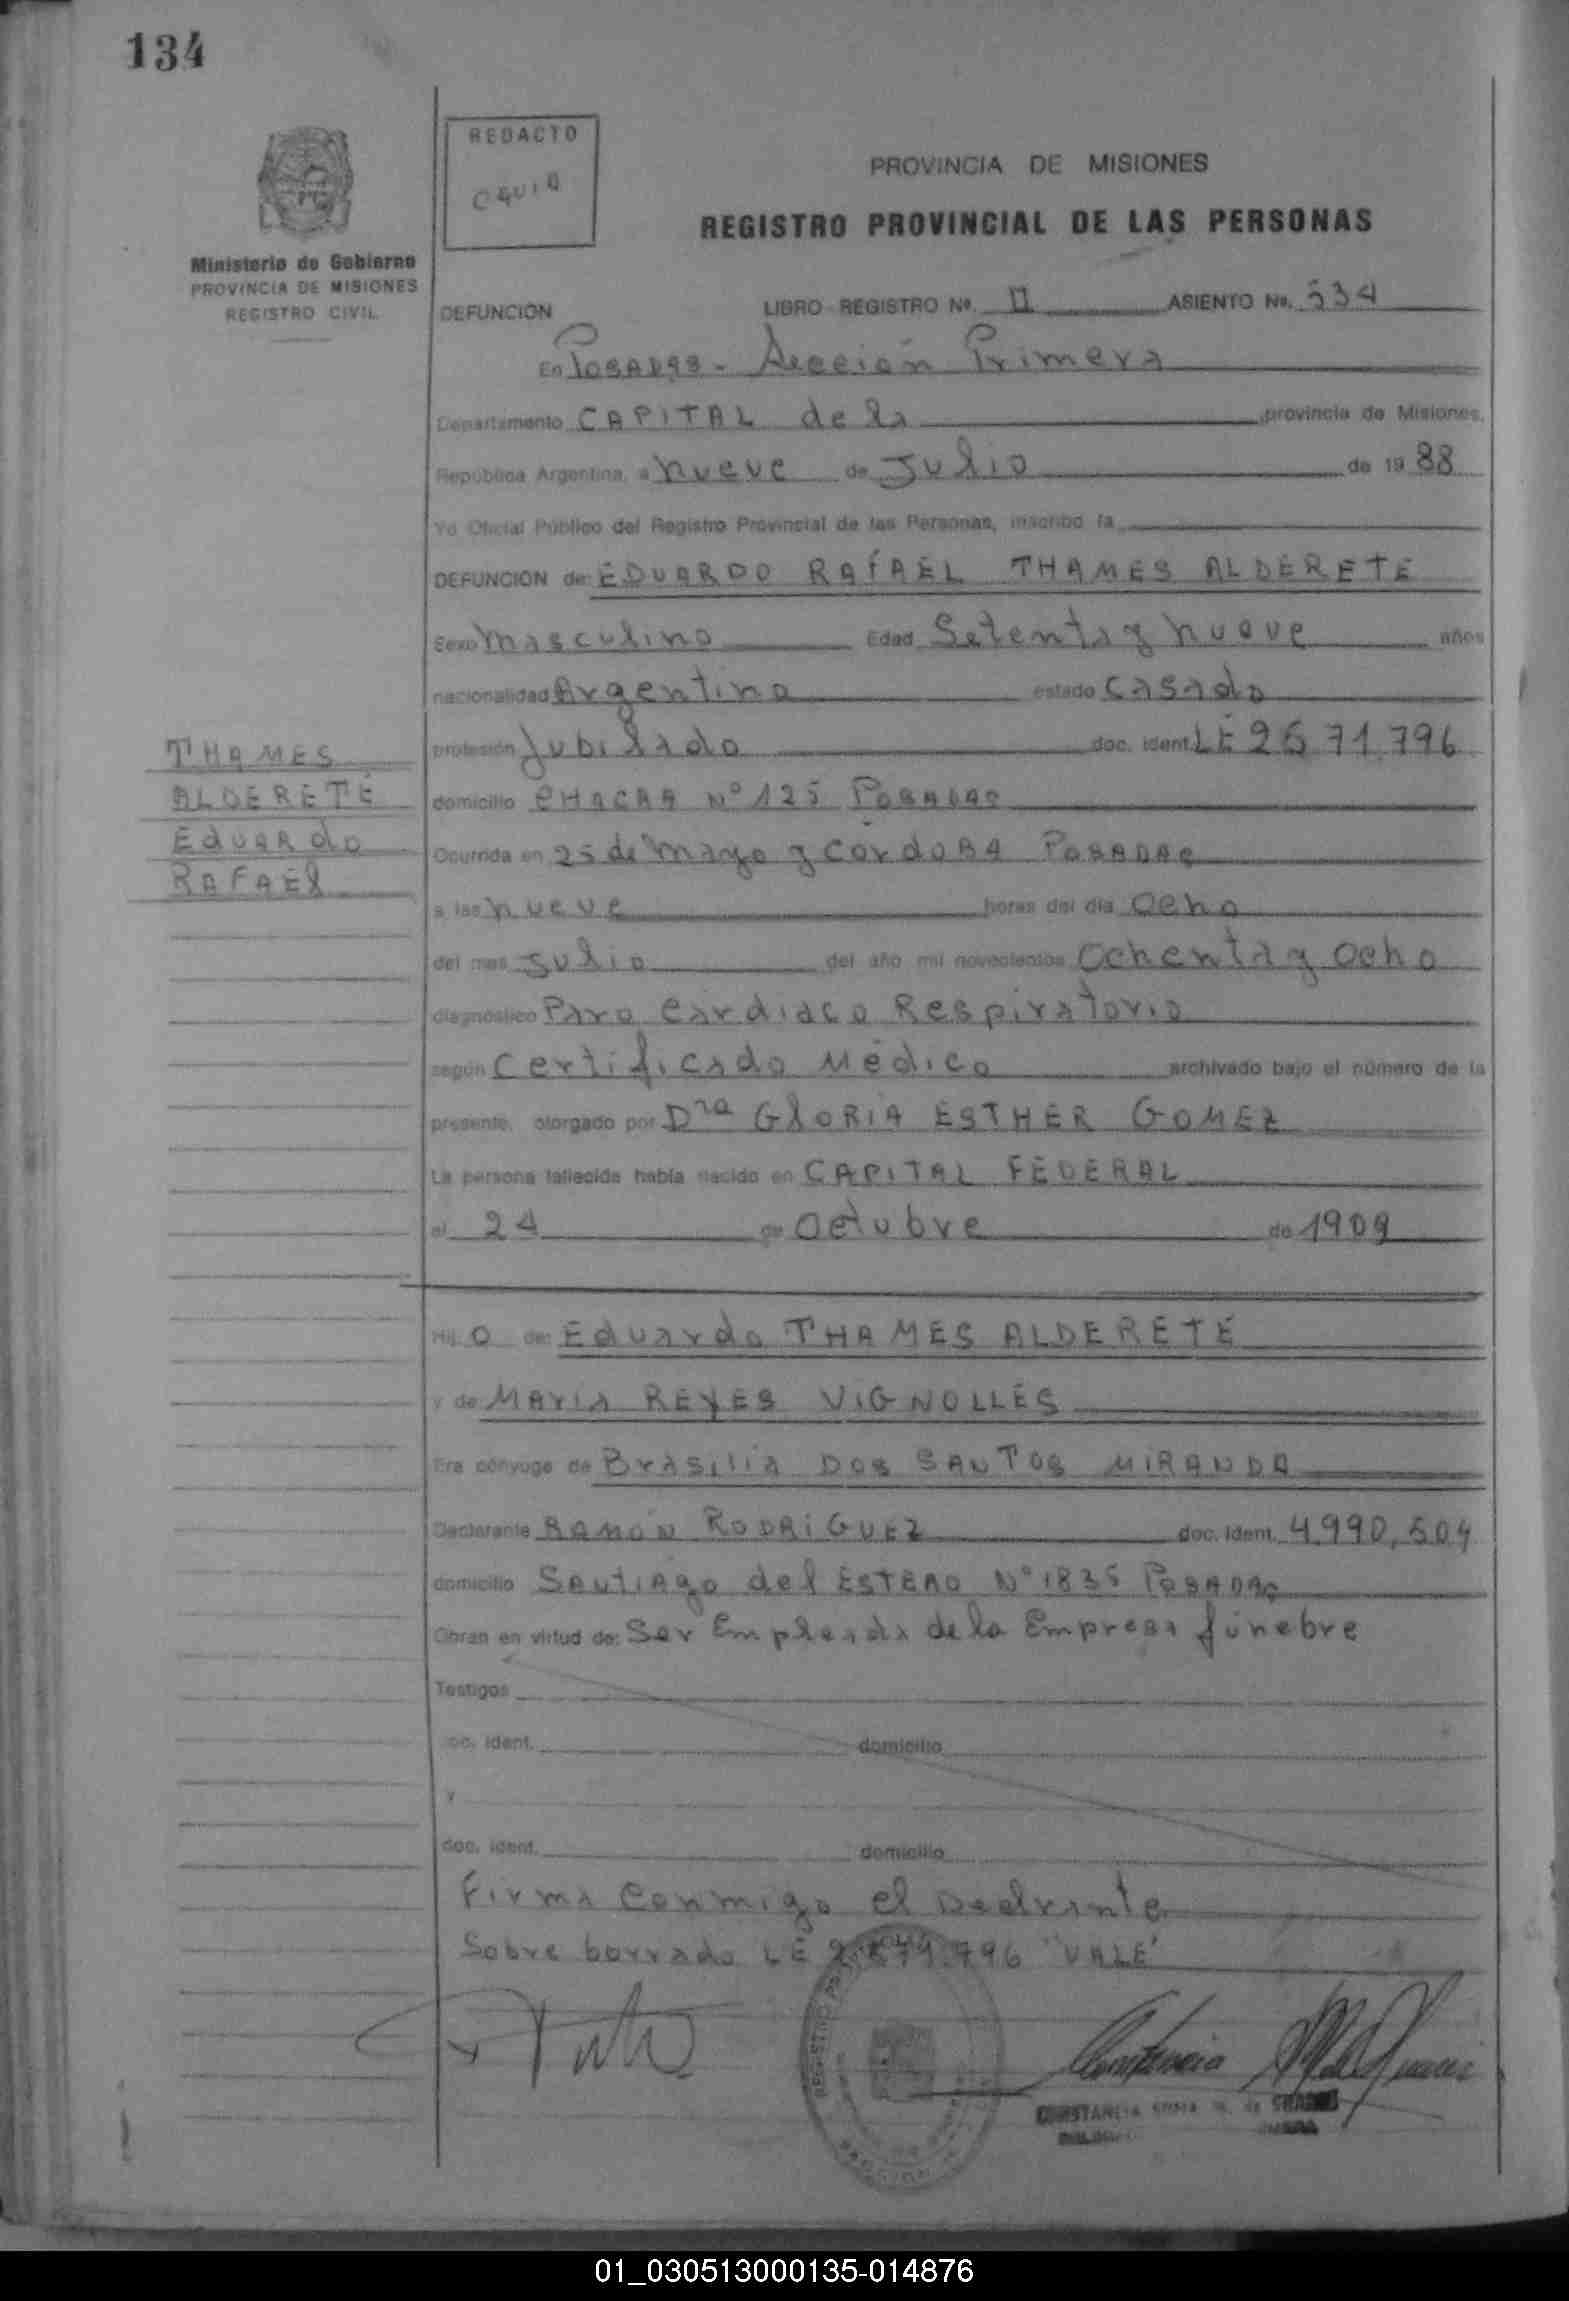 134
REDACTO
PROVINCIA DE MISIONES
REGISTRO PROVINCIAL DE LAS PERSONAS
Ministerio de Gobierno
PROVINCIA DE MISIONES
REGISTRO CIVIL
DEFUNCION LIBRO REGISTRO No. II ASIENTO No. 534
En POSADAS - Sección Primera
Departamento CAPITAL de la provincia de Misiones,
República Argentina, a nueve de Julio de 19 88
Yo Oficial Público del Registro Provincial de las Personas, inscribo la
DEFUNCION de: EDUARDO RAFAEL THAMES ALDERETE
Sexo Masculino Edad Setenta y nueve años
nacionalidad Argentina estado casado
profesión Jubilado doc. ident. LE 2571.796
domicilio CHACRA Nº 125 POSADAS
Ocurrida en 25 de Mayo y CORDOBA POSADAS
a las nueve horas del día ocho
del mes Julio del año mil novecientos Ochenta y ocho
diagnóstico Paro Cardiaco Respiratorio
según Certificado Médico archivado bajo el número de la
presente, otorgado por Dra GLORIA ESTHER GOMEZ
La persona fallecida había nacido en CAPITAL FEDERAL
el 24 de Octubre de 1909
THAMES
ALDERETE
Eduardo
RAFAEL
Hij O de: Eduardo THAMES ALDERETE
y de MARIA REYES VIGNOLLES
Era cónyuge de Brasilia DOS SANTOS MIRANDA
Declarante RAMON RODRIGUEZ doc. ident. 4.990.504
domicilio SANTIAGO del ESTERO Nº 1835 POSADAS
Obran en virtud de: Ser Empleado de la Empresa fúnebre
Testigos
doc. ident. domicilio
y
doc. ident. domicilio
Firma Conmigo el Declarante
Sobre borrado LE 2.571.796 "VALE"
01_030513000135-014876